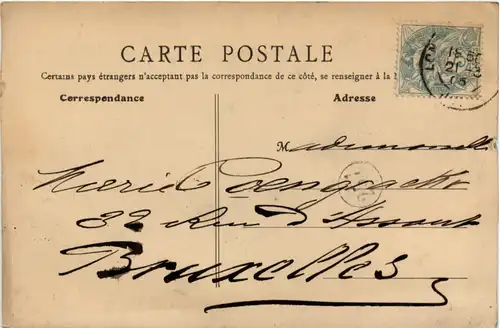 CARTE POSTALE
Certains pays étrangers n'acceptant pas la correspondance de ce côté, se renseigner à la
Correspondance
Adresse
Mademoiselle
Marie
32 Rue d'Assaut
Bruxelles